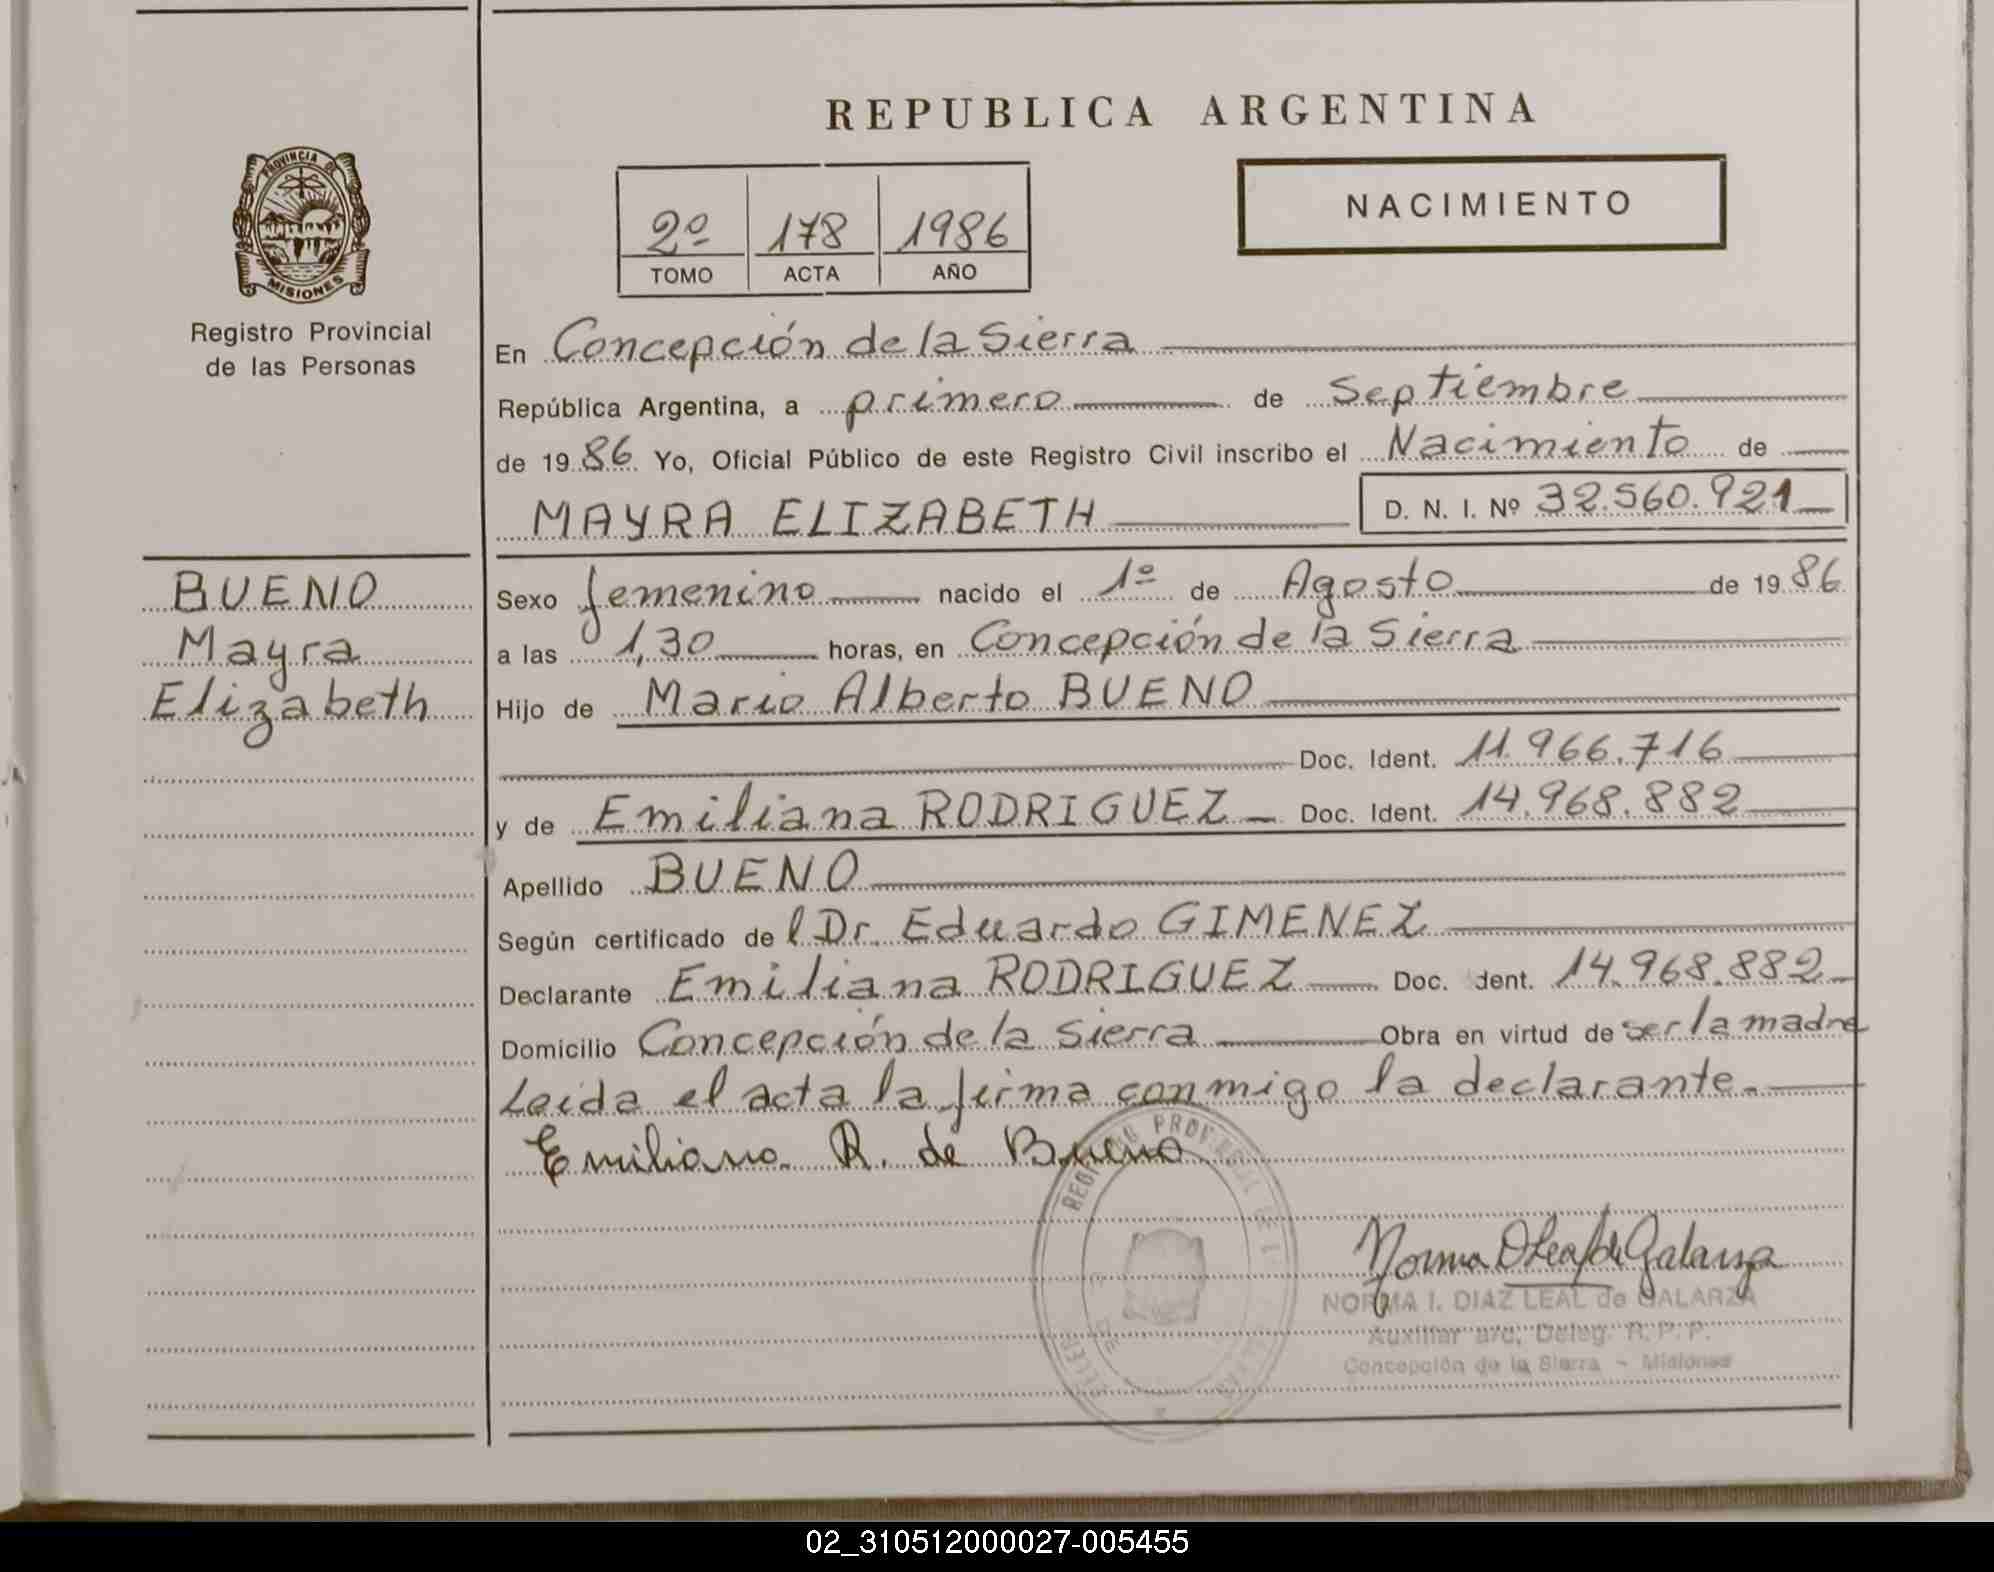 REPUBLICA ARGENTINA
PROVINCIA DE
MISIONES
Registro Provincial
de las Personas
2º 178 1986
TOMO ACTA AÑO
NACIMIENTO
En Concepción de la Sierra
República Argentina, a primero de Septiembre
de 1986 Yo, Oficial Público de este Registro Civil inscribo el Nacimiento de
MAYRA ELIZABETH D. N. I. Nº 32.560.921
BUENO
Mayra
Elizabeth
Sexo femenino nacido el 1º de Agosto de 1986
a las 1,30 horas, en Concepción de la Sierra
Hijo de Mario Alberto BUENO
Doc. Ident. 11.966.716
y de Emiliana RODRIGUEZ Doc. Ident. 14.968.882
Apellido BUENO
Según certificado del Dr. Eduardo GIMENEZ
Declarante Emiliana RODRIGUEZ Doc. Ident. 14.968.882
Domicilio Concepción de la Sierra Obra en virtud de ser la madre
Leída el acta la firma conmigo la declarante.
Emiliana R. de Bueno
REGISTRO PROVINCIAL DE
Norma de Galarza
NORMA I. DIAZ LEAL de GALARZA
Auxiliar a/c, Deleg. R. P. P.
Concepción de la Sierra - Misiones
02_310512000027-005455